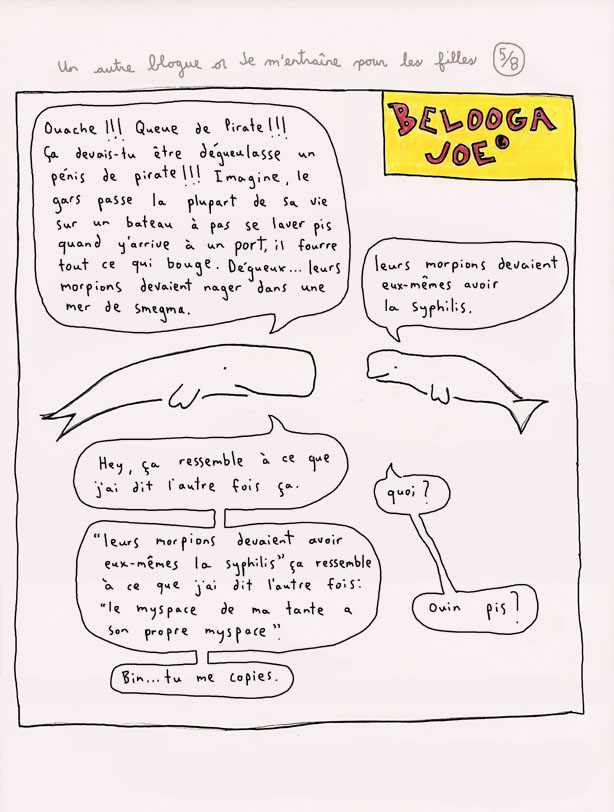 Un autre blogue où Je m'entraîne pour les filles 5/8
BELOOGA
JOE
Ouache !!! Queue de Pirate !!!
Ça devais-tu être dégueulasse un
pénis de pirate !!! Imagine, le
gars passe la plupart de sa vie
sur un bateau à pas se laver pis
quand y'arrive à un port, il fourre
tout ce qui bouge. Dégueux... leurs
morpions devaient nager dans une
mer de smegma.
leurs morpions devaient
eux-mêmes avoir
la syphilis.
Hey, ça ressemble à ce que
j'ai dit l'autre fois ça.
quoi ?
"leurs morpions devaient avoir
eux-mêmes la syphilis" ça ressemble
à ce que j'ai dit l'autre fois:
"le myspace de ma tante a
son propre myspace".
Ouin pis ?
Bin... tu me copies.